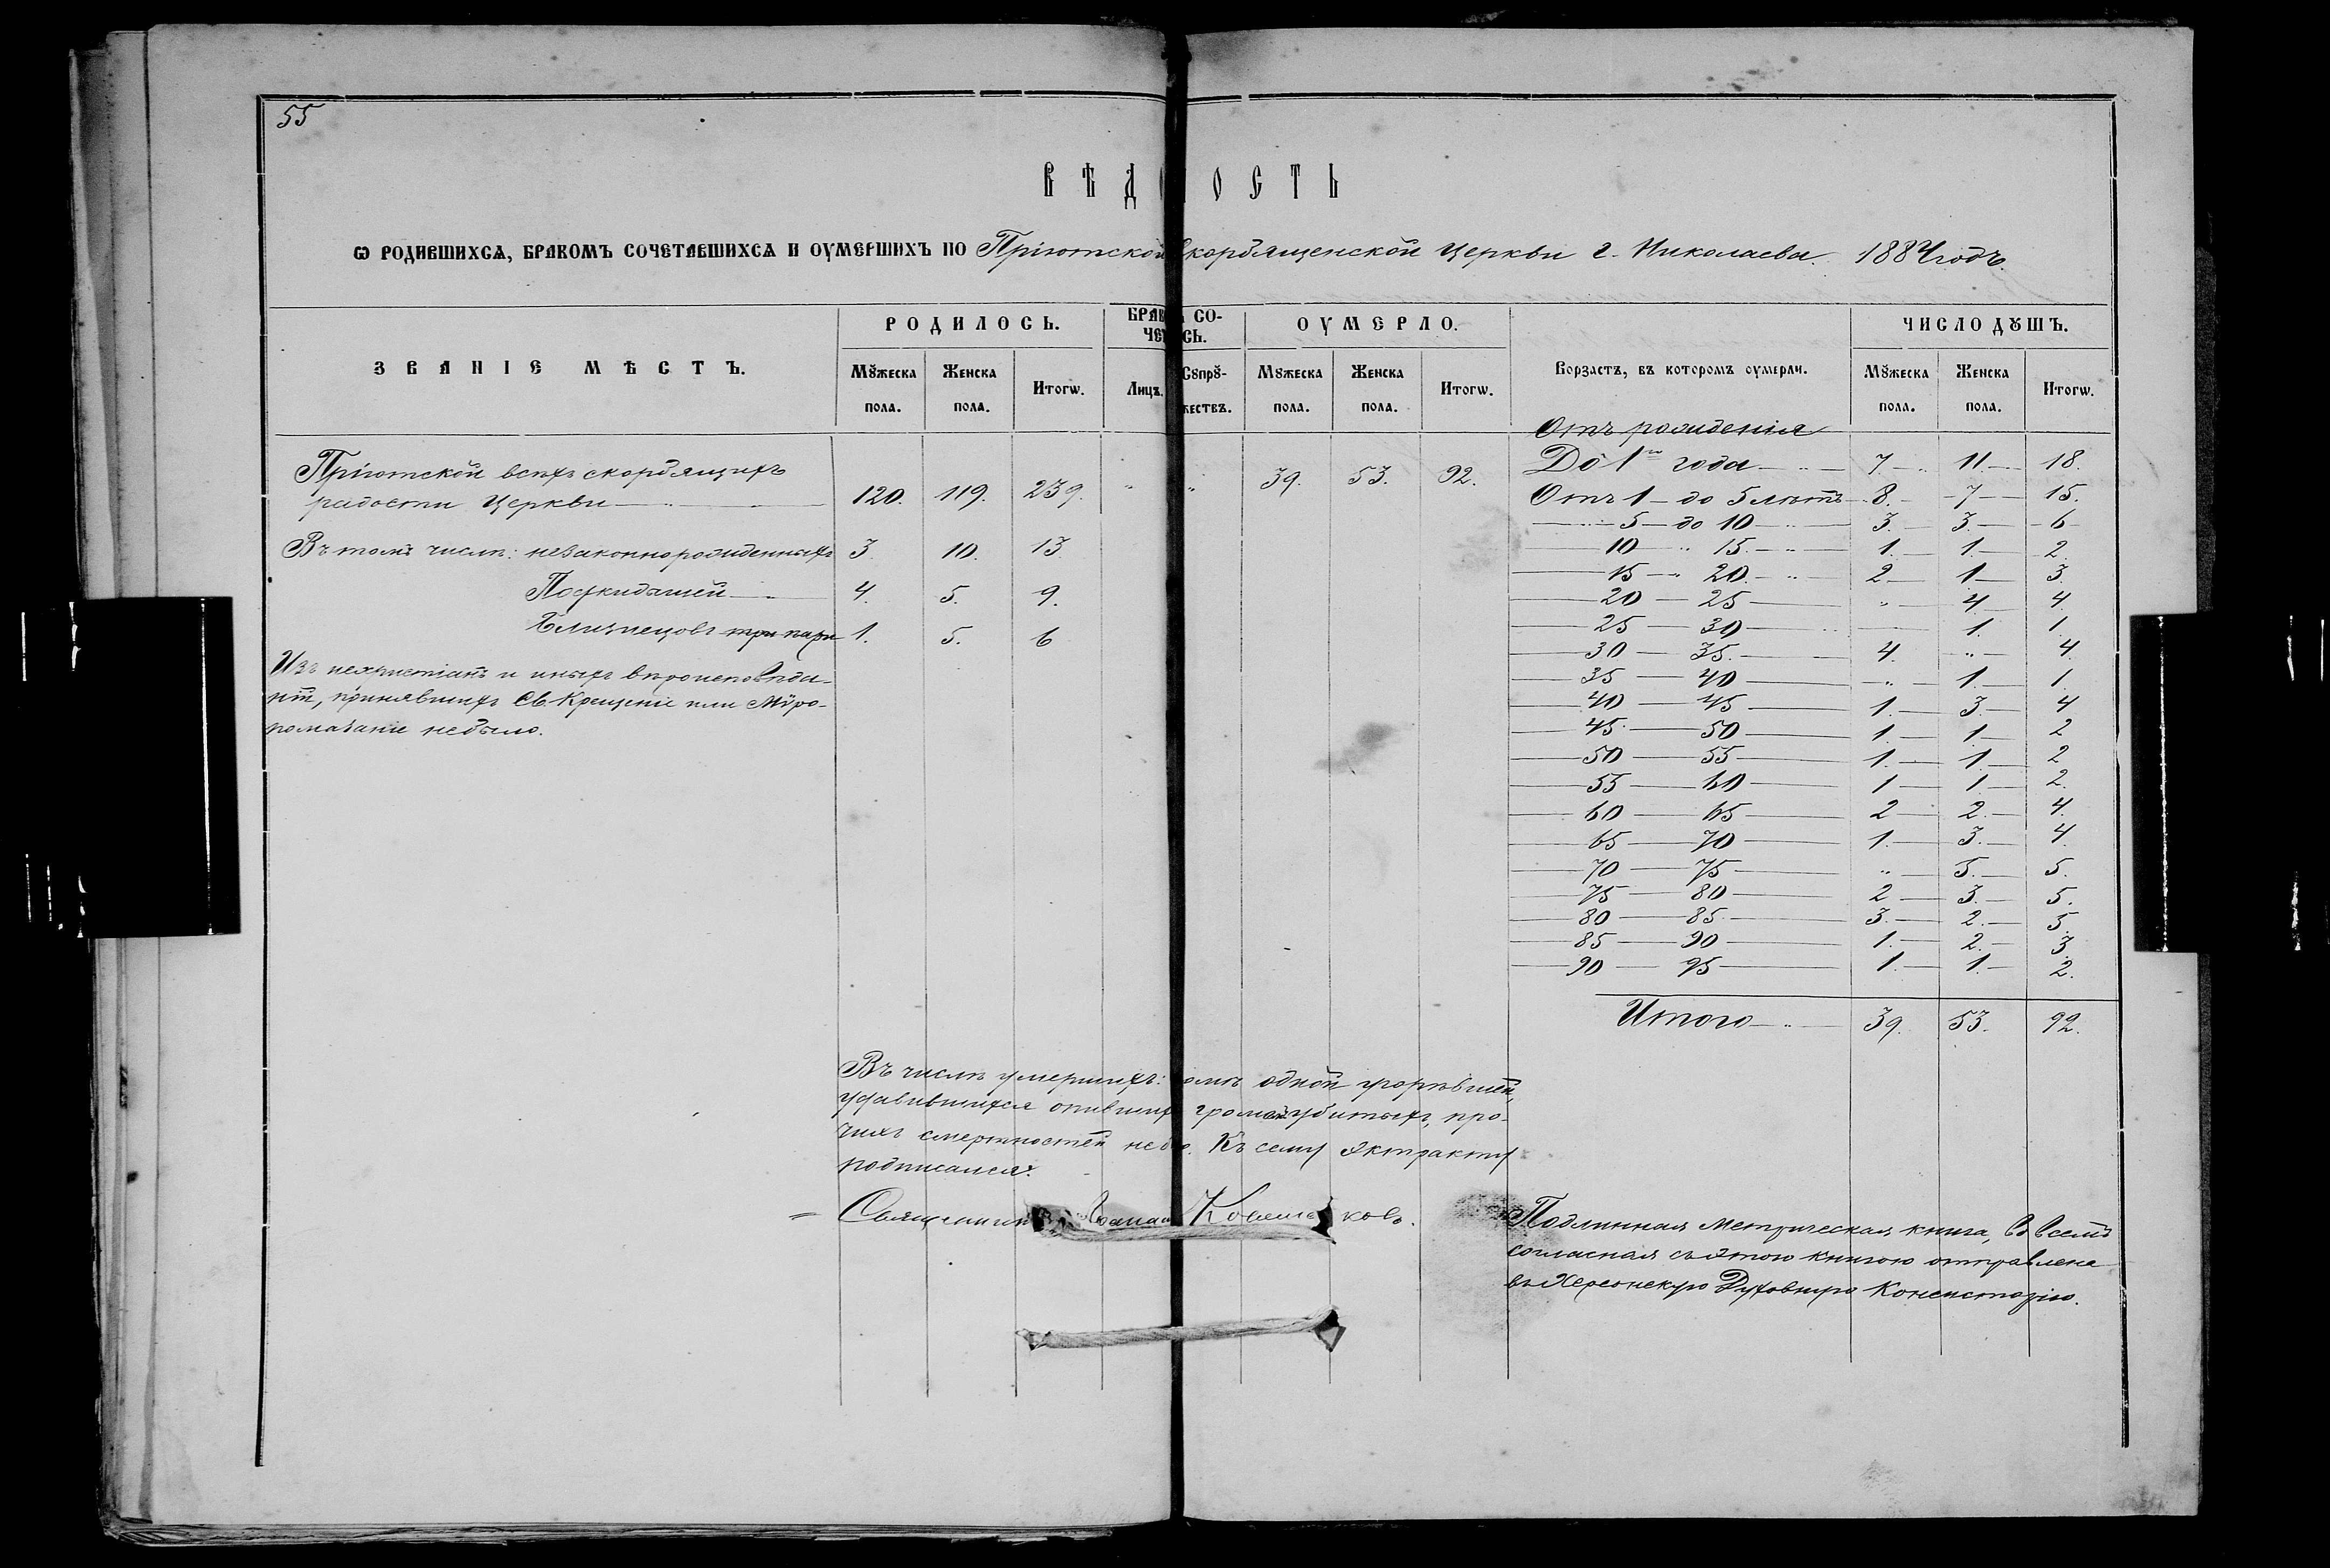 55
ВѢД ОСТЬ
Ѡ РОДИВШИХСѦ, БРАКОМЪ СОЧЕТАВШИХСѦ И ОУМЕРШИХЪ ПО Пріютской скорбященской церкви г. Николаева. 1884 годъ.
ЗВАНІЕ МѢСТЪ.
РОДИЛОСЬ.
БРАК СО-
ЧЕТ СЬ.
ОУМЕРЛО.
Возрастъ, въ которомъ оумерли.
ЧИСЛО ДꙊШЪ.
Мꙋжеска пола. Женска пола. Итогѡ. Лицъ. Сꙋпрꙋ-жествъ. Мꙋжеска пола. Женска пола. Итогѡ. Мꙋжеска пола. Женска пола. Итогѡ.
Пріютской всѣхъ скорбящихъ
радости Церкви 120. 119. 239. " " 39. 53. 92.
Въ томъ числѣ: незаконнорожденныхъ 3. 10. 13
Подкидышей 4. 5. 9.
Близнецовъ три пары 1. 5. 6
Изъ нехристіанъ и иныхъ вѣроисповѣда-
нiй, принявшихъ Св. Крещеніе или Мѵро-
помазаніе небыло.
Отъ рожденія
До 1го года 7. 11. 18.
Отъ 1 до 5 лѣтъ 8. 7 15.
5 до 10 3. 3. 6
10 " 15. 1. 1. 2.
15 " 20. 2. 1 3.
20 25 " 4 4.
25 30 1. 1.
30 35. 4. " 4.
35 40 " 1. 1.
40 45 1. 3. 4
45 50 1. 1. 2
50 55 1. 1. 2
55 60 1 1. 2.
60 65 2 2. 4.
65 70 1. 3. 4.
70 75 " 5. 5.
75 80 2 3. 5.
80 85. 3. 2. 5.
85 90 1. 2. 3.
90 95 1. 1. 2.
Итого 39. 53. 92.
Въ числѣ умершихъ: одной угорѣвшей,
удавившихся опившихъ громомъ убитыхъ, про-
чихъ смертностей не Къ сему экстракту
подписался:
Священник
ковъ.
Подлинная метрическая книга, во всемъ
согласная съ этою книгою отправлена
въ Херсонскую Духовную Консисторію.